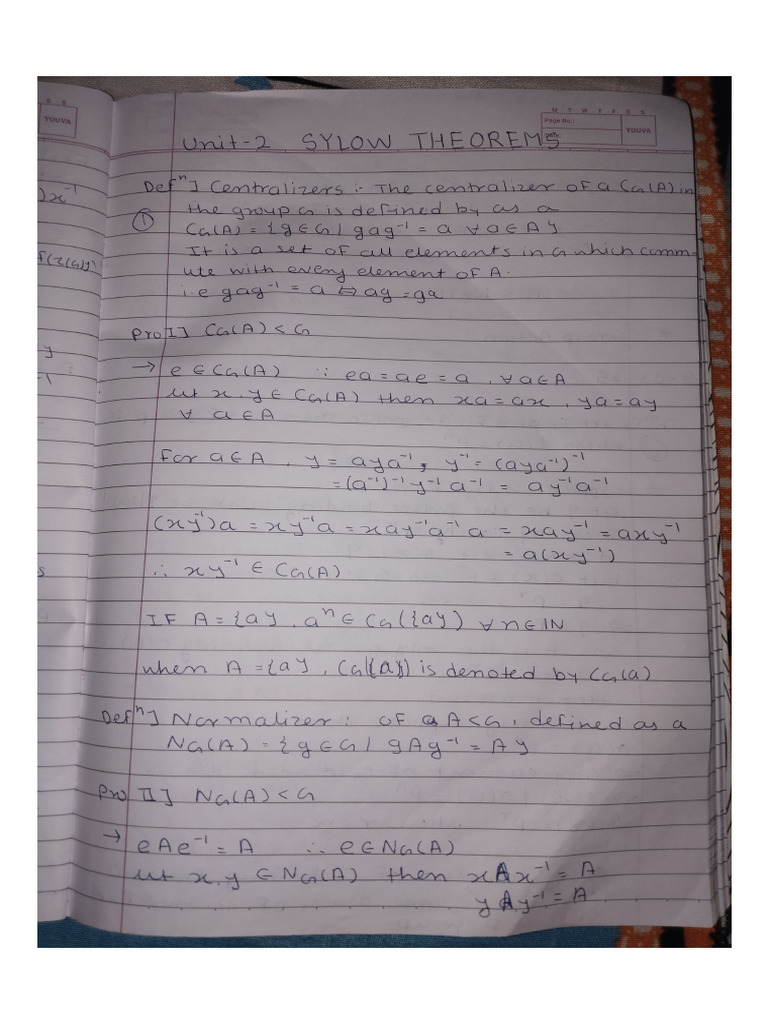 R S
YOUVA
)x⁻¹
f(z(G)y'
y
-1
s
M T W T F S S
Page No.:
Date:
YOUVA
Unit-2 SYLOW THEOREMS
Defⁿ] Centralizers :- The centralizer of a CG(A) in
① the group G is defined by as a
CG(A) = {g ∈ G / gag⁻¹ = a ∀ a ∈ A}
It is a set of all elements in G which comm-
ute with every element of A.
i.e gag⁻¹ = a ⇔ ag = ga
Pro I] CG(A) < G
→ e ∈ CG(A) ∵ ea = ae = a , ∀ a ∈ A
let x, y ∈ CG(A) then xa = ax , ya = ay
∀ a ∈ A
For a ∈ A , y = aya⁻¹, y⁻¹ = (aya⁻¹)⁻¹
= (a⁻¹)⁻¹ y⁻¹ a⁻¹ = ay⁻¹a⁻¹
(xy⁻¹)a = xy⁻¹a = xay⁻¹a⁻¹a = xay⁻¹ = axy⁻¹
= a(xy⁻¹)
∴ xy⁻¹ ∈ CG(A)
IF A = {a}, aⁿ ∈ CG({a}) ∀ n ∈ IN
when A = {a}, CG({a}) is denoted by CG(a)
Defⁿ] Normalizer : OF a A < G, defined as a
NG(A) = {g ∈ G / gAg⁻¹ = A}
Pro II] NG(A) < G
→ eAe⁻¹ = A ∴ e ∈ NG(A)
let x, y ∈ NG(A) then xAx⁻¹ = A
yAy⁻¹ = A